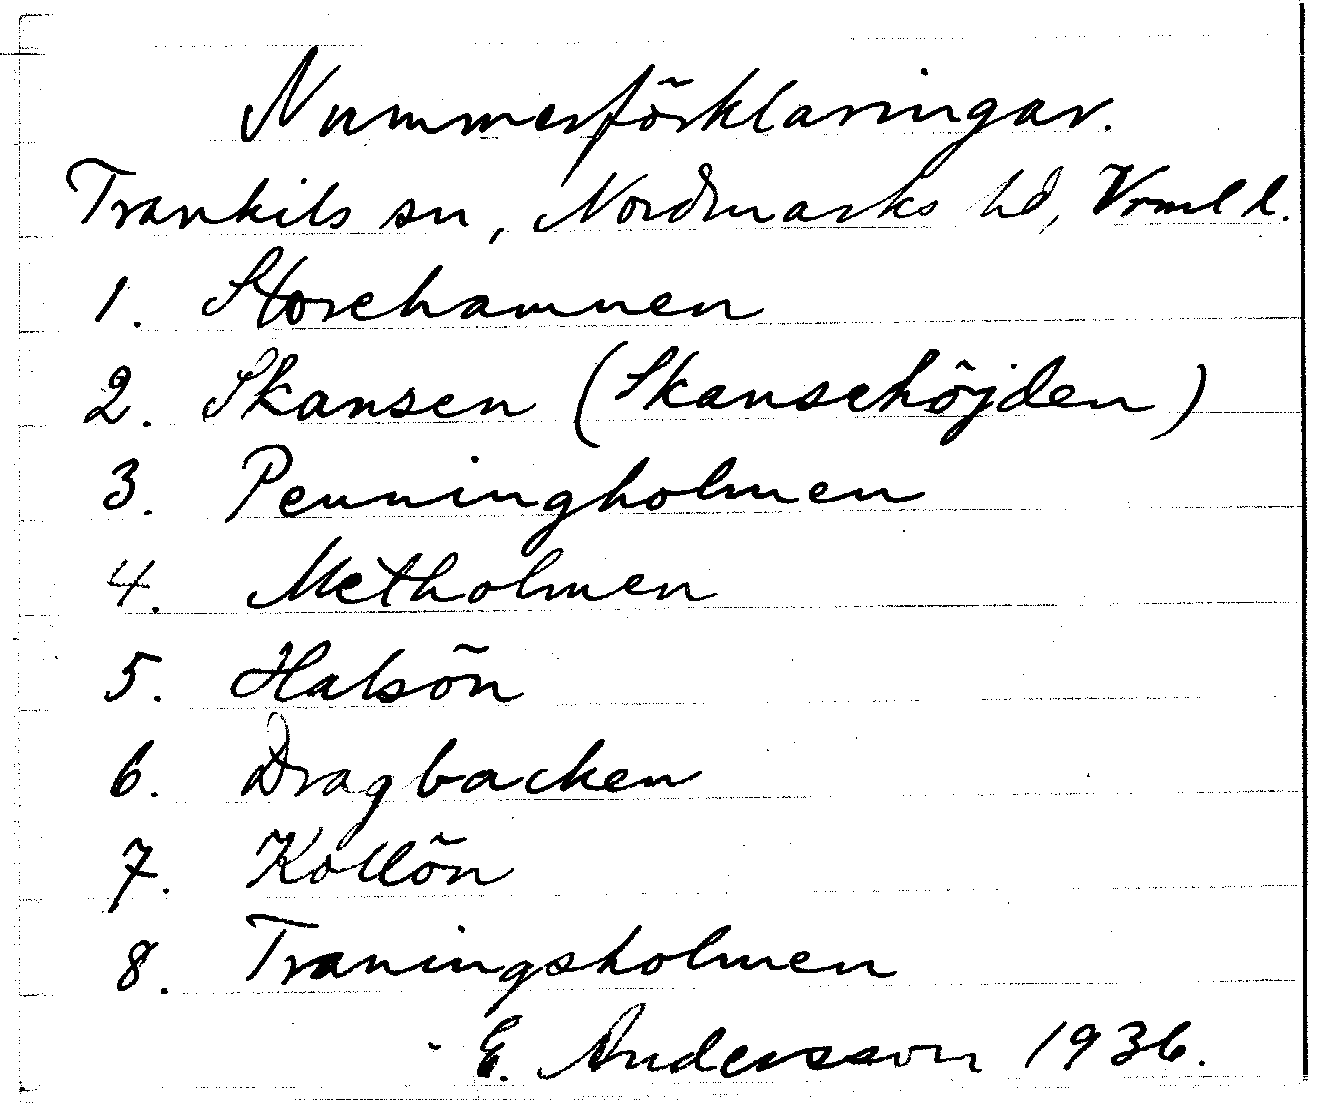 Nummerförklaringar.
Trankils sn, Nordmarks hd, Vrml l.
1. Storehamnen
2. Skansen (Skansehöjden)
3. Penningholmen
4. Metholmen
5. Halsön
6. Dragbacken
7. Kollön
8. Traningsholmen
E. Andersson 1936.